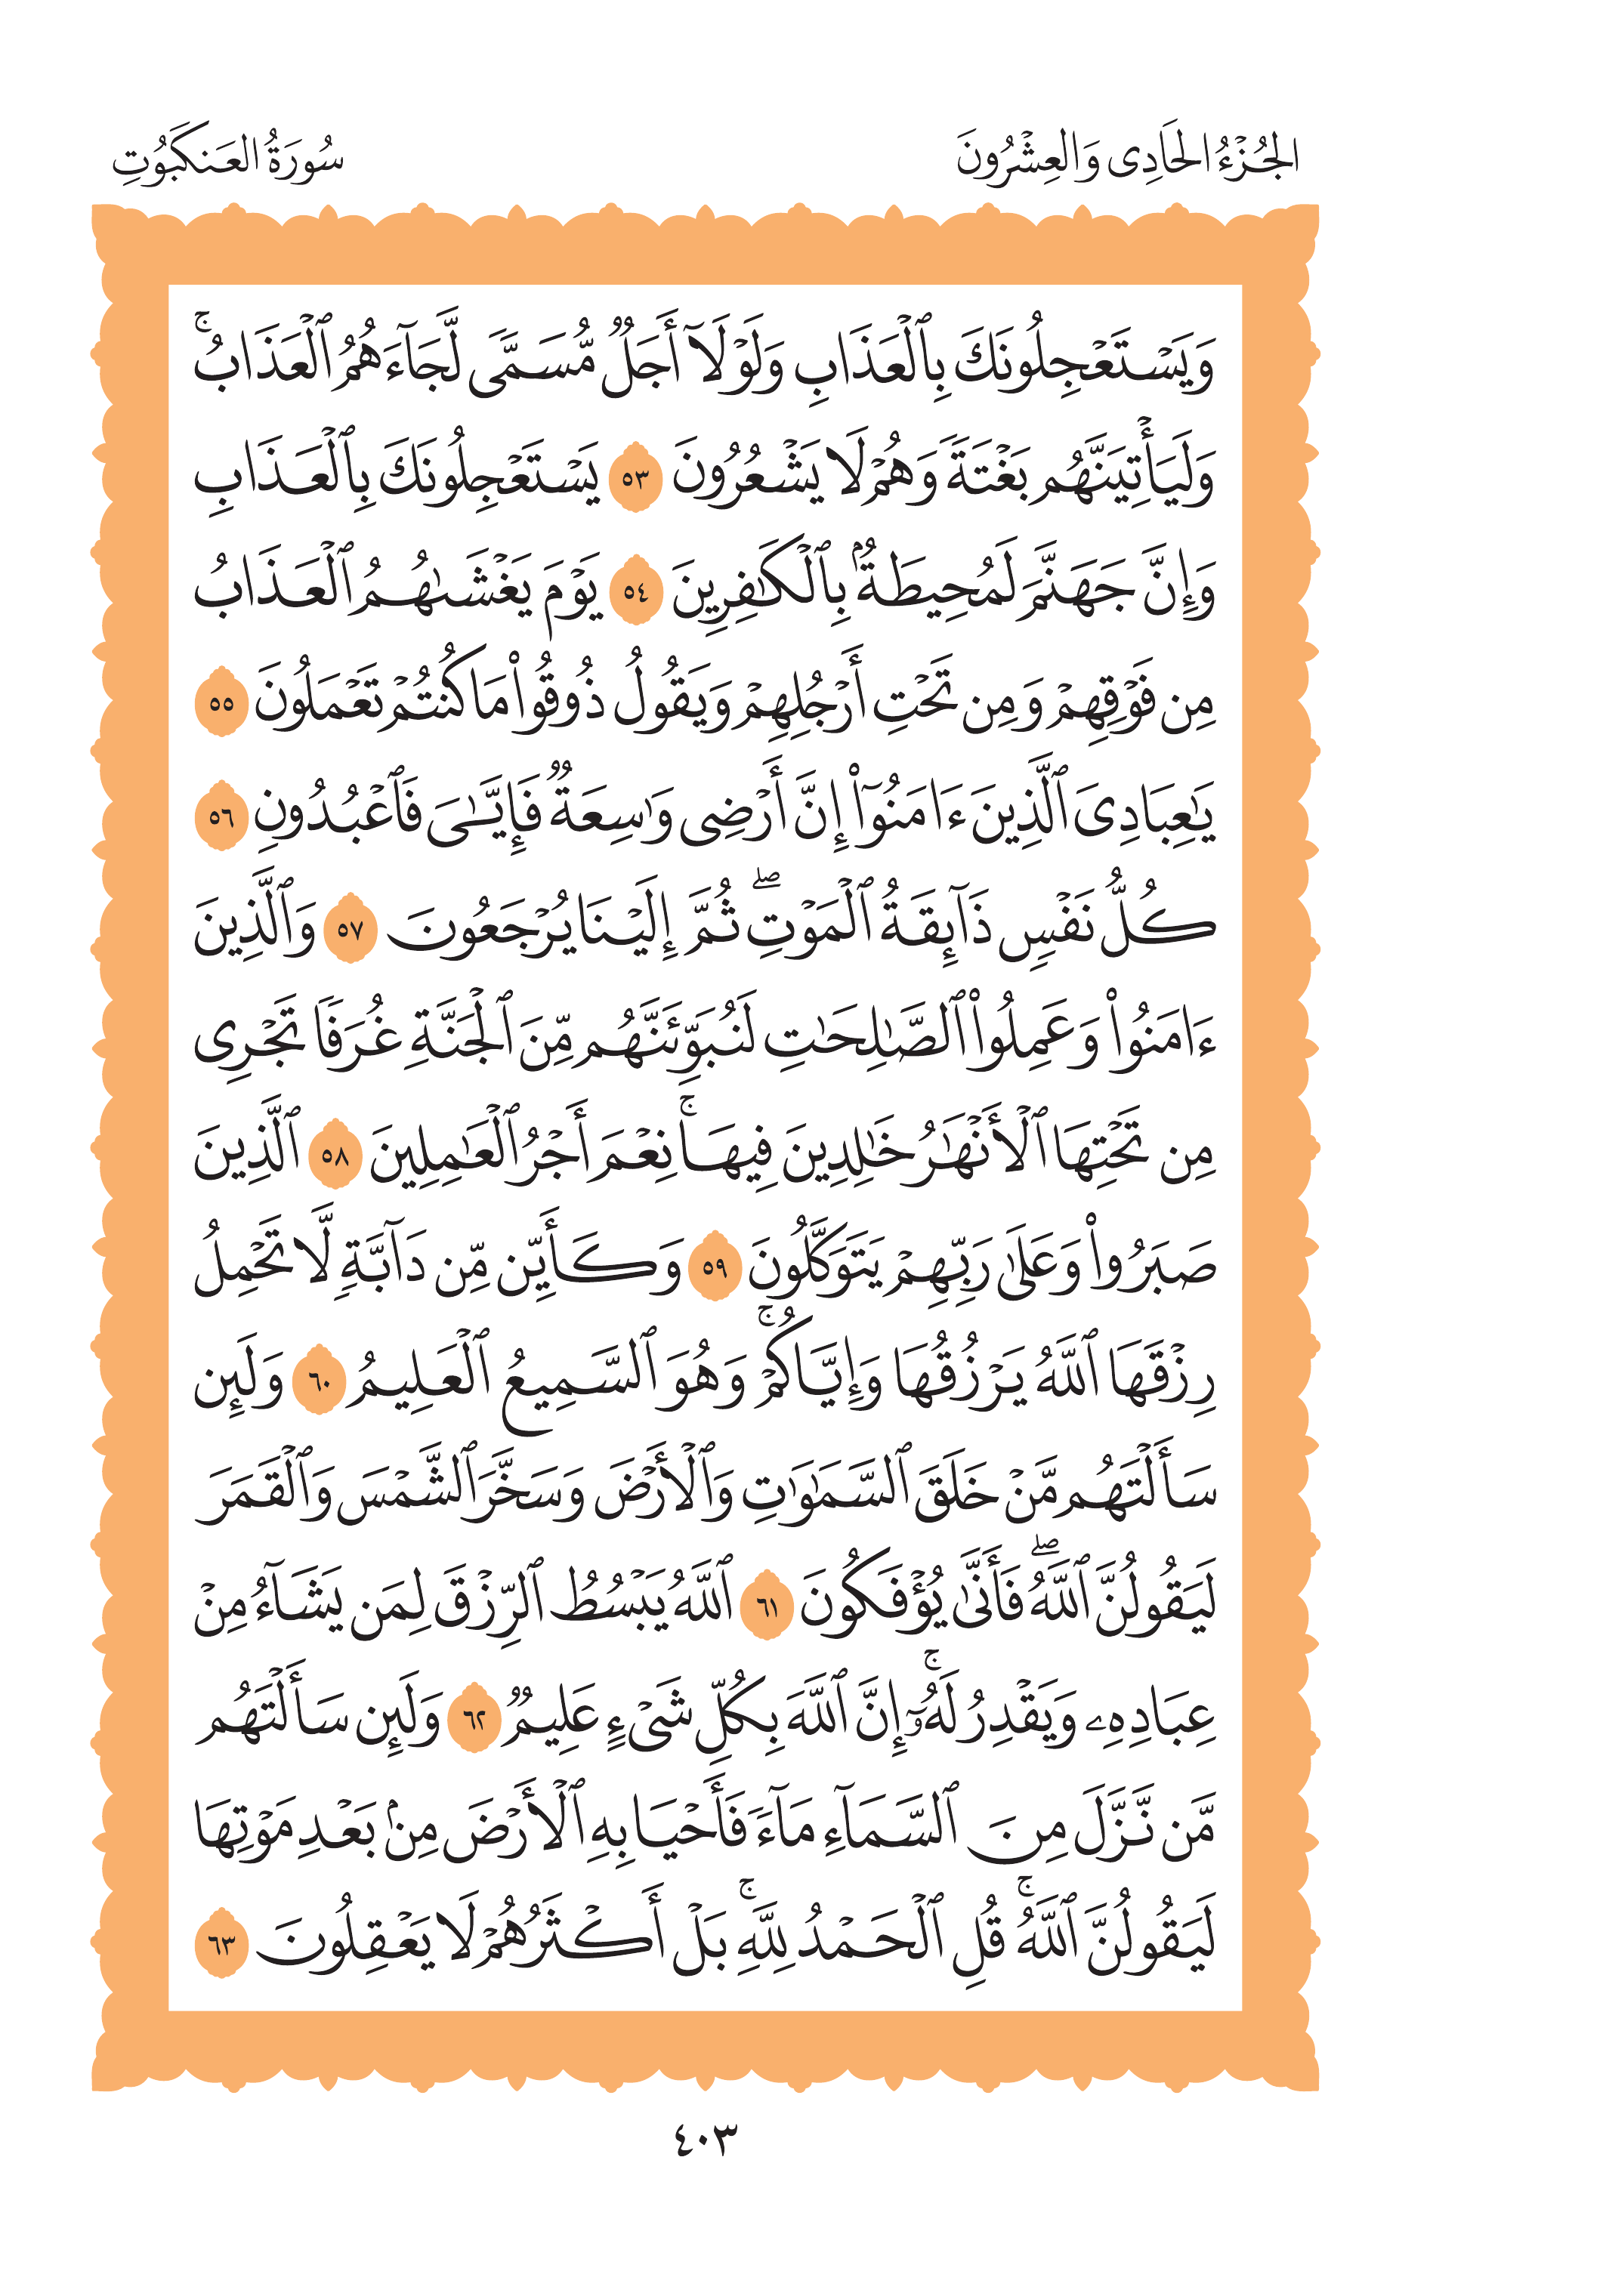 الجُزْءُ الحَادِى وَالعِشْرُونَ
سُورَةُ العَنكَبُوتِ
وَيَسْتَعْجِلُونَكَ بِٱلْعَذَابِ وَلَوْلَآ أَجَلٌ مُّسَمًّى لَّجَآءَهُمُ ٱلْعَذَابُۚ
وَلَيَأْتِيَنَّهُم بَغْتَةً وَهُمْ لَا يَشْعُرُونَ ٥٣ يَسْتَعْجِلُونَكَ بِٱلْعَذَابِ
وَإِنَّ جَهَنَّمَ لَمُحِيطَةٌۢ بِٱلْكَٰفِرِينَ ٥٤ يَوْمَ يَغْشَىٰهُمُ ٱلْعَذَابُ
مِن فَوْقِهِمْ وَمِن تَحْتِ أَرْجُلِهِمْ وَيَقُولُ ذُوقُوا۟ مَا كُنتُمْ تَعْمَلُونَ ٥٥
يَٰعِبَادِىَ ٱلَّذِينَ ءَامَنُوٓا۟ إِنَّ أَرْضِى وَٰسِعَةٌ فَإِيَّٰىَ فَٱعْبُدُونِ ٥٦
كُلُّ نَفْسٍ ذَآئِقَةُ ٱلْمَوْتِۖ ثُمَّ إِلَيْنَا يُرْجَعُونَ ٥٧ وَٱلَّذِينَ
ءَامَنُوا۟ وَعَمِلُوا۟ ٱلصَّٰلِحَٰتِ لَنُبَوِّئَنَّهُم مِّنَ ٱلْجَنَّةِ غُرَفًا تَجْرِى
مِن تَحْتِهَا ٱلْأَنْهَٰرُ خَٰلِدِينَ فِيهَاۚ نِعْمَ أَجْرُ ٱلْعَٰمِلِينَ ٥٨ ٱلَّذِينَ
صَبَرُوا۟ وَعَلَىٰ رَبِّهِمْ يَتَوَكَّلُونَ ٥٩ وَكَأَيِّن مِّن دَآبَّةٍ لَّا تَحْمِلُ
رِزْقَهَا ٱللَّهُ يَرْزُقُهَا وَإِيَّاكُمْۚ وَهُوَ ٱلسَّمِيعُ ٱلْعَلِيمُ ٦٠ وَلَئِن
سَأَلْتَهُم مَّنْ خَلَقَ ٱلسَّمَٰوَٰتِ وَٱلْأَرْضَ وَسَخَّرَ ٱلشَّمْسَ وَٱلْقَمَرَ
لَيَقُولُنَّ ٱللَّهُۖ فَأَنَّىٰ يُؤْفَكُونَ ٦١ ٱللَّهُ يَبْسُطُ ٱلرِّزْقَ لِمَن يَشَآءُ مِنْ
عِبَادِهِۦ وَيَقْدِرُ لَهُۥٓۚ إِنَّ ٱللَّهَ بِكُلِّ شَىْءٍ عَلِيمٌ ٦٢ وَلَئِن سَأَلْتَهُم
مَّن نَّزَّلَ مِنَ ٱلسَّمَآءِ مَآءً فَأَحْيَا بِهِ ٱلْأَرْضَ مِنۢ بَعْدِ مَوْتِهَا
لَيَقُولُنَّ ٱللَّهُۚ قُلِ ٱلْحَمْدُ لِلَّهِۚ بَلْ أَكْثَرُهُمْ لَا يَعْقِلُونَ ٦٣
٤٠٣